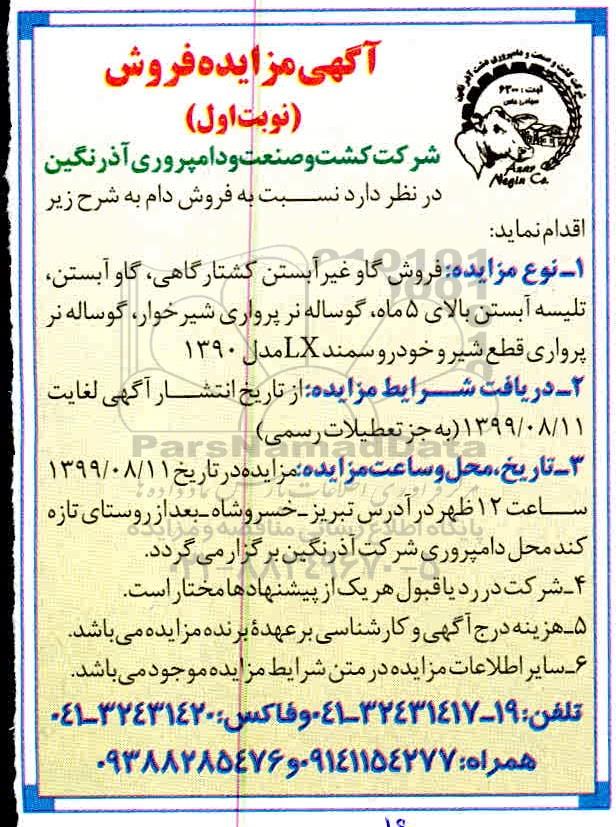 آگهی مزایده فروش
(نوبت اول)
شرکت کشت و صنعت و دامپروری آذرنگین
ثبت: ۶۳۰۰
سهامی خاص
Azar
Negin Co.
در نظر دارد نسبت به فروش دام به شرح زیر
اقدام نماید:
۱ـ نوع مزایده: فروش گاو غیرآبستن کشتارگاهی، گاو آبستن،
تلیسه آبستن بالای ۵ ماه، گوساله نر پرواری شیرخوار، گوساله نر
پرواری قطع شیر و خودرو سمند LX مدل ۱۳۹۰
۲ـ دریافت شرایط مزایده: از تاریخ انتشار آگهی لغایت
۱۳۹۹/۰۸/۱۱ (به جز تعطیلات رسمی)
۳ـ تاریخ، محل و ساعت مزایده: مزایده در تاریخ ۱۳۹۹/۰۸/۱۱
ساعت ۱۲ ظهر در آدرس تبریز ـ خسروشاه ـ بعد از روستای تازه
کند محل دامپروری شرکت آذرنگین برگزار می گردد.
۴ـ شرکت در رد یا قبول هر یک از پیشنهادها مختار است.
۵ـ هزینه درج آگهی و کارشناسی بر عهدۀ برنده مزایده می باشد.
۶ـ سایر اطلاعات مزایده در متن شرایط مزایده موجود می باشد.
تلفن: ۱۹ـ۳۲۴۳۱۴۱۷ـ۰۴۱ و فاکس: ۳۲۴۳۱۴۲۰ـ۰۴۱
همراه: ۰۹۱۴۱۱۵۴۲۷۷ و ۰۹۳۸۸۲۸۵۴۷۶
ParsNamadData
پایگاه اطلاع رسانی مناقصه و مزایده
۰۲۱-۸۸۳۴۹۶۷۰-۵